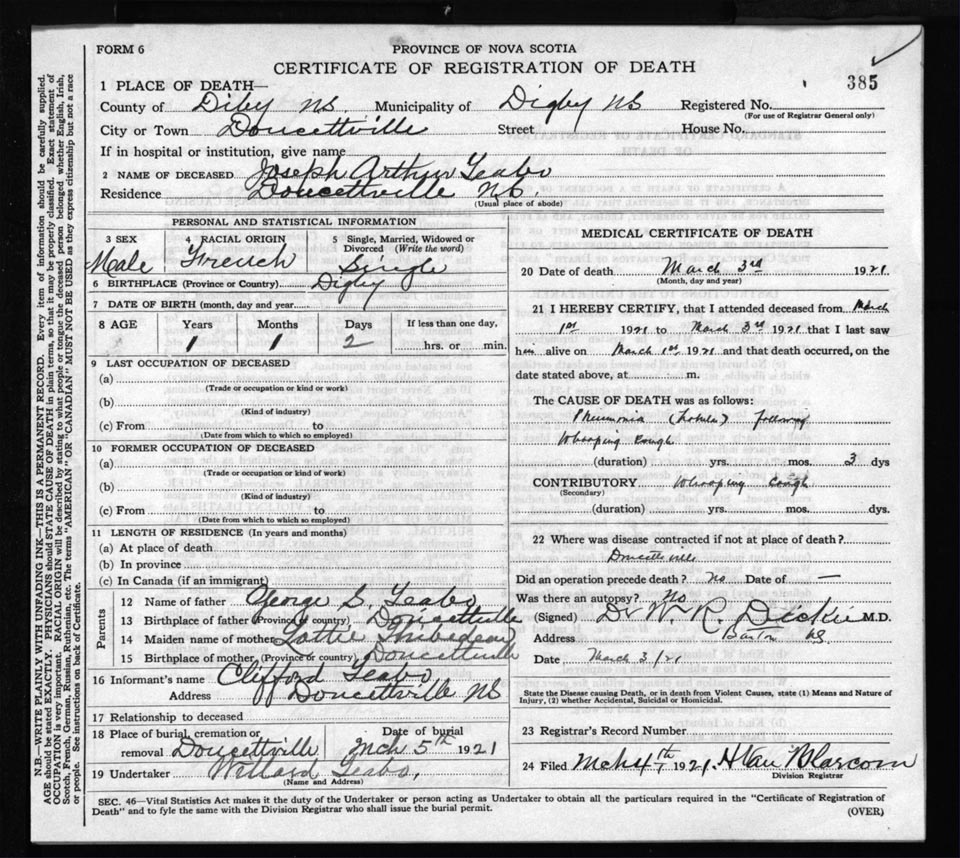 FORM 6
PROVINCE OF NOVA SCOTIA
CERTIFICATE OF REGISTRATION OF DEATH
385
1 PLACE OF DEATH—
County of Diby NS. Municipality of Digby NS Registered No.
(For use of Registrar General only)
City or Town Doucettville Street House No.
If in hospital or institution, give name
2 NAME OF DECEASED Joseph Arthur Teabo
Residence Doucettville NS.
(Usual place of abode)
PERSONAL AND STATISTICAL INFORMATION
3 SEX 4 RACIAL ORIGIN 5 Single, Married, Widowed or Divorced (Write the word)
Male French Single
6 BIRTHPLACE (Province or Country) Digby
7 DATE OF BIRTH (month, day and year)
8 AGE Years Months Days If less than one day,
1 1 2 hrs. or min.
9 LAST OCCUPATION OF DECEASED
(a)
(Trade or occupation or kind or work)
(b)
(Kind of industry)
(c) From to
(Date from which to which so employed)
10 FORMER OCCUPATION OF DECEASED
(a)
(Trade or occupation or kind of work)
(b)
(Kind of industry)
(c) From to
(Date from which to which so employed)
11 LENGTH OF RESIDENCE (In years and months)
(a) At place of death
(b) In province
(c) In Canada (if an immigrant)
Parents
12 Name of father George S. Teabo
13 Birthplace of father (Province or country) Doucettville
14 Maiden name of mother Lottie
15 Birthplace of mother (Province or country) Doucettville
16 Informant's name Clifford Teabo
Address Doucettville NS
17 Relationship to deceased
18 Place of burial, cremation or Date of burial
removal Doucettville Mch 5th 1921
19 Undertaker Willard Teabo.
(Name and Address)
MEDICAL CERTIFICATE OF DEATH
20 Date of death March 3rd 1921
(Month, day and year)
21 I HEREBY CERTIFY, that I attended deceased from March
1st 1921 to March 3rd 1921 that I last saw
him alive on March 1st 1921 and that death occurred, on the
date stated above, at m.
The CAUSE OF DEATH was as follows:
Pneumonia (Lobular) following
Whooping Cough
(duration) yrs. mos. 3 dys
CONTRIBUTORY Whooping Cough
(Secondary)
(duration) yrs. mos. dys.
22 Where was disease contracted if not at place of death?
Doucettville
Did an operation precede death? No Date of —
Was there an autopsy? No
(Signed) Dr W. R. Dickie M.D.
Address Barton NS
Date March 3/21
State the Disease causing Death, or in death from Violent Causes, state (1) Means and Nature of
Injury, (2) whether Accidental, Suicidal or Homicidal.
23 Registrar's Record Number
24 Filed Mch 4th 1921.
Division Registrar
SEC. 46—Vital Statistics Act makes it the duty of the Undertaker or person acting as Undertaker to obtain all the particulars required in the "Certificate of Registration of
Death" and to fyle the same with the Division Registrar who shall issue the burial permit.
(OVER)
N.B.—WRITE PLAINLY WITH UNFADING INK—THIS IS A PERMANENT RECORD. Every item of information should be carefully supplied.
AGE should be stated EXACTLY. PHYSICIANS should STATE CAUSE OF DEATH in plain terms, so that it may be properly classified. Exact statement of
OCCUPATION is very important. RACIAL ORIGIN will be described by stating to what people or tongue the deceased person belonged whether English, Irish,
Scotch, French, German, Russian, Ruthenian, etc. The terms "AMERICAN" OR "CANADIAN" MUST NOT BE USED as they express citizenship but not a race
or people. See instructions on back of Certificate.